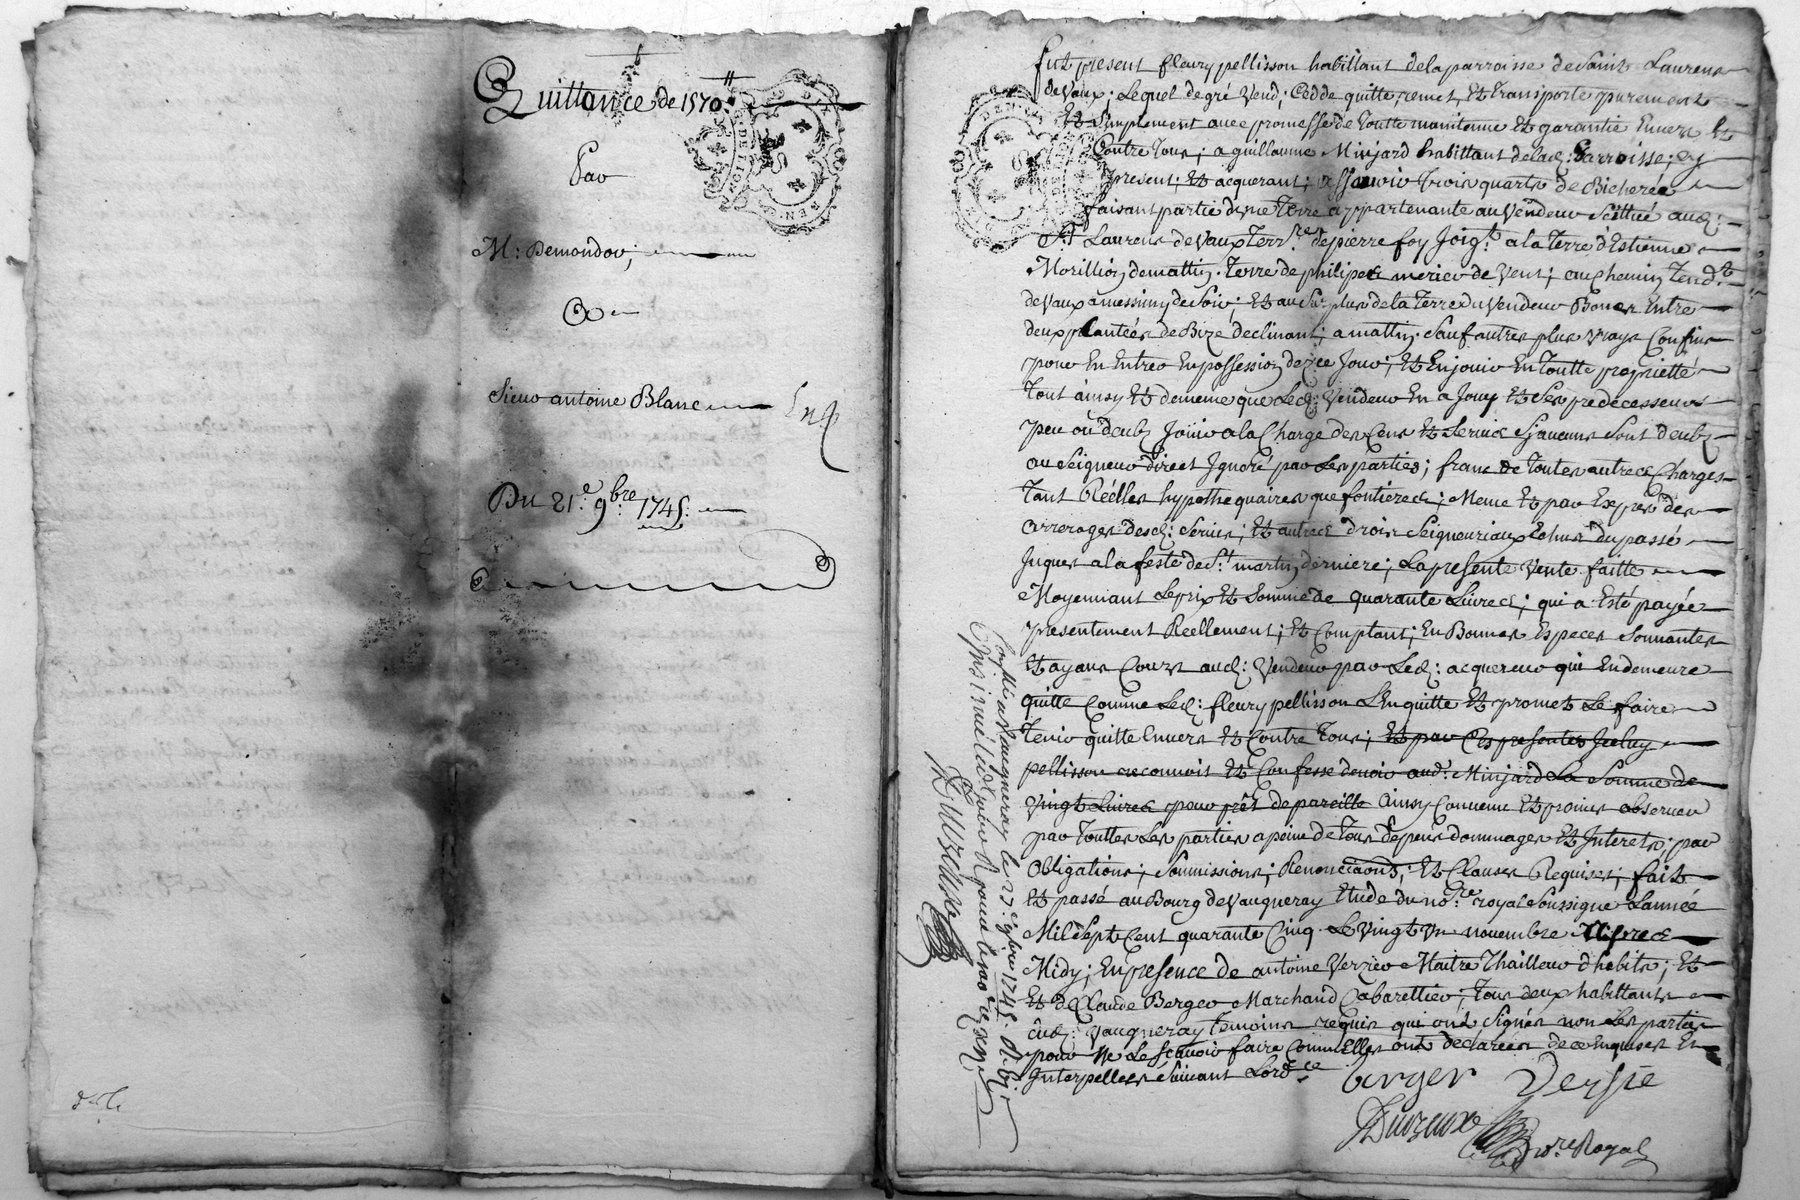 Quittance de 1570ᴴ
Par
M: Demondor;
A
Sieur antoine Blanc
Du 21.e 9bre: 1745.
fut present fleury pellisson habittant de la parroisse de Saint Laurens
de Vaux; Lequel de gré Vend; Cedde quitte, remet, Et transporte purement
Et Simplement avec promesse de Toutte maintenue Et garantie Envers Et
Contre Tous; a guillaume Minjard habittant de lad: Parroisse; Cy
present; Et acquerant; assavoir Trois quarts de Bicherée
faisant partie d'une Terre appartenante au Vendeur Scittué aud:
St Laurens de Vaux Terr.re de pierre foy Joig.t a la Terre d'Estienne
Morillion de mattin. Terre de philipes merier de Vent; au Chemin Tend.t
de Vaux a messimy de Soir; Et au Surplus de la Terre du Vendeur Bornes Entre
deux plantées de Bize declinant; a mattin. Sauf autres plus Vrays Confins
pour En Entrer En possession de ce Jour; Et En jouir En Toutte proprietté
Tout ainsy Et de meme que Led: Vendeur En a Jouy Et Ses predecesseurs
peu ou deub Jouir a la Charge des Cens Et Servis Sy aucuns Sont deubs
au Seigneur direct Ignoré par Les parties; franc de Toutes autres Charges
Tant Réelles hypothequaires que fontieres; Meme Et par Exprès des
arrerages desd: Servis; Et autres droits Seigneuriaux Echus du passé
Juques a la feste de St. martin derniere; La presente Vente faitte
Moyennant Le prix Et Somme de quarante Livres; qui a Esté payée
presentement Réellement; Et Comptant; En Bonnes Especes Sonnantes
Et ayans Cours aud: Vendeur par Led: acquereur qui En demeure
quitte Comme Led: fleury pellisson L'En quitte Et promet Le faire
Tenir quitte Envers Et Contre Tous; Et par Ces presentes Jceluy
pellisson reconnoit Et Confesse devoir aud: Minjard La Somme de
Vingt Livres pour prêt de pareille ainsy Convenu Et promis observer
par Touttes Les parties a peine de Tous depens dommages Et Interets; par
Obligations; Soumissions; Renonciaons; Et Clauses Requises; fait
Et passé au Bourg de Vaugneray Etude du no.re royal Soussigné L'année
Mil Sept Cent quarante Cinq. Le Vingt Un novembre Apres
Midy; En presence de antoine Verzier Maitre Thailleur d'habits; Et
Et de Claude Berger Marchand Cabarettier; Tous deux habittants
aud: Vaugneray Temoins requis qui ont Signés non Les parties
pour Ne Le Scavoir faire Comm'Elles ont declarées de ce Enquises Et
Interpellees Suivant L'ord.ce
berger Versie
no.re Royal
a Vaugneray le 27.e 9bre 1745.